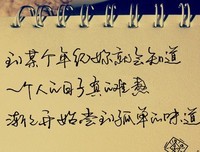 到某个年纪你就会知道
一个人的日子真的难熬
渐渐开始尝到孤单的味道